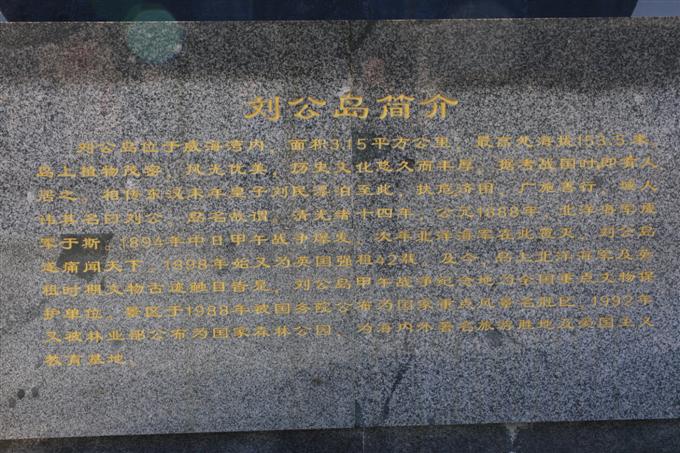 刘公岛简介
刘公岛位于威海湾内，面积3.15平方公里，最高处海拔153.5米，
岛上植物茂密，风光优美，历史文化悠久而丰厚。据考战国时即有人
居之，相传东汉末年皇子刘民漂泊至此，扶危济困，广施善行，
其名曰刘公，岛名故谓。清光绪十四年，公元1888年，北洋海军成
军于斯。1894年中日甲午战争爆发，次年北洋海军在此覆灭，刘公岛
悲痛闻天下。1998年始又为英国强租42载，及今，岛上北洋海军及英
租时期文物古迹触目皆是，刘公岛甲午战争纪念地为全国重点文物保
护单位，景区于1988年被国务院公布为国家重点风景名胜区，1992年
又被林业部公布为国家森林公园，为海内外著名旅游胜地及爱国主义
教育基地。